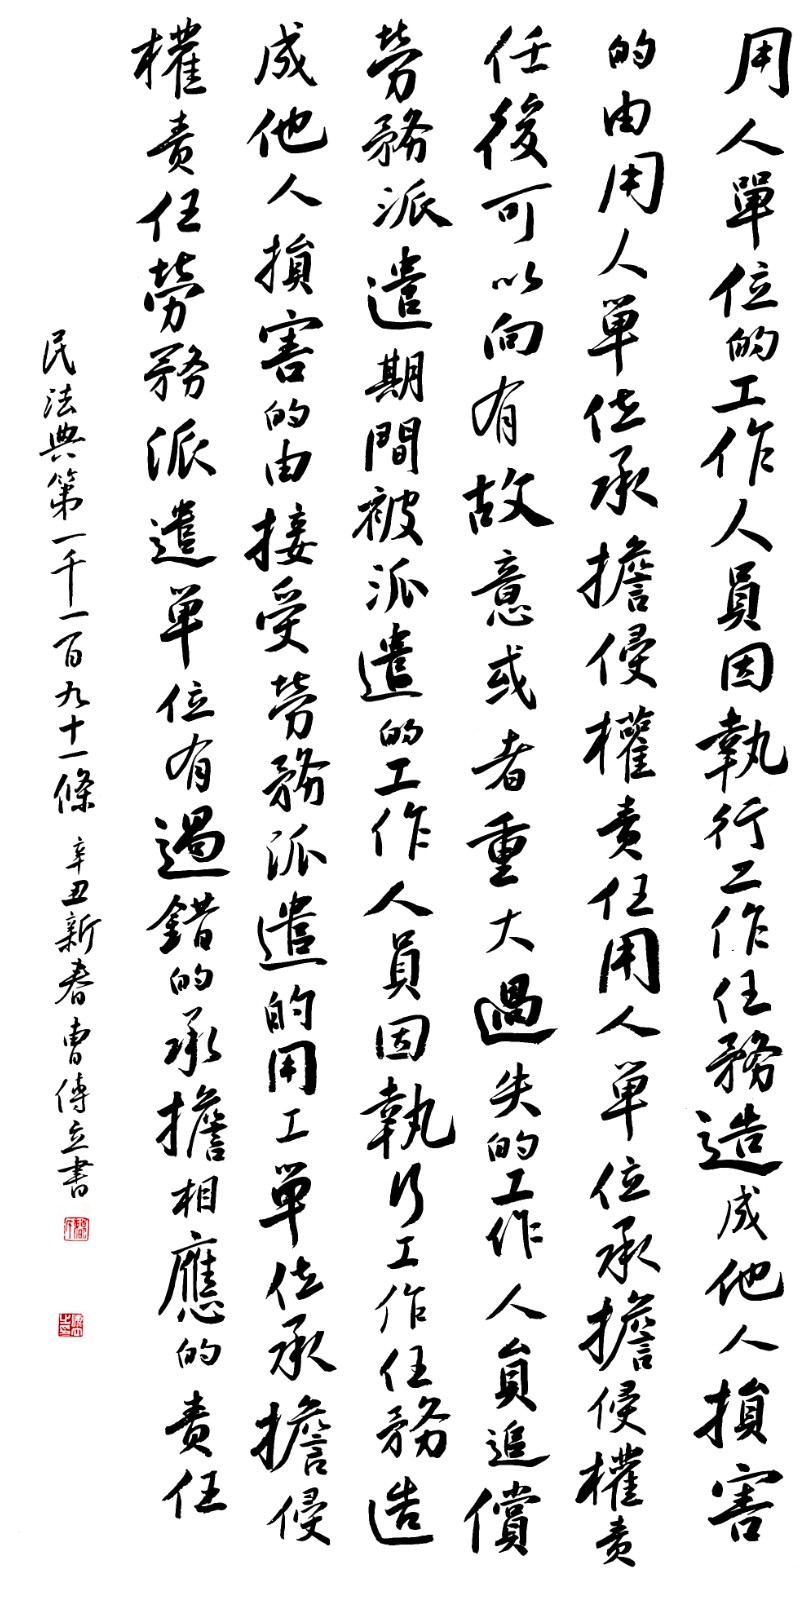 用人單位的工作人員因執行工作任務造成他人損害
的由用人单位承擔侵權責任用人单位承擔侵權責
任後可以向有故意或者重大過失的工作人員追償
勞務派遣期間被派遣的工作人員因執行工作任務造
成他人損害的由接受勞務派遣的用工单位承擔侵
權責任勞務派遣单位有過錯的承擔相應的責任
民法典第一千一百九十一條 辛丑新春曹傳立書